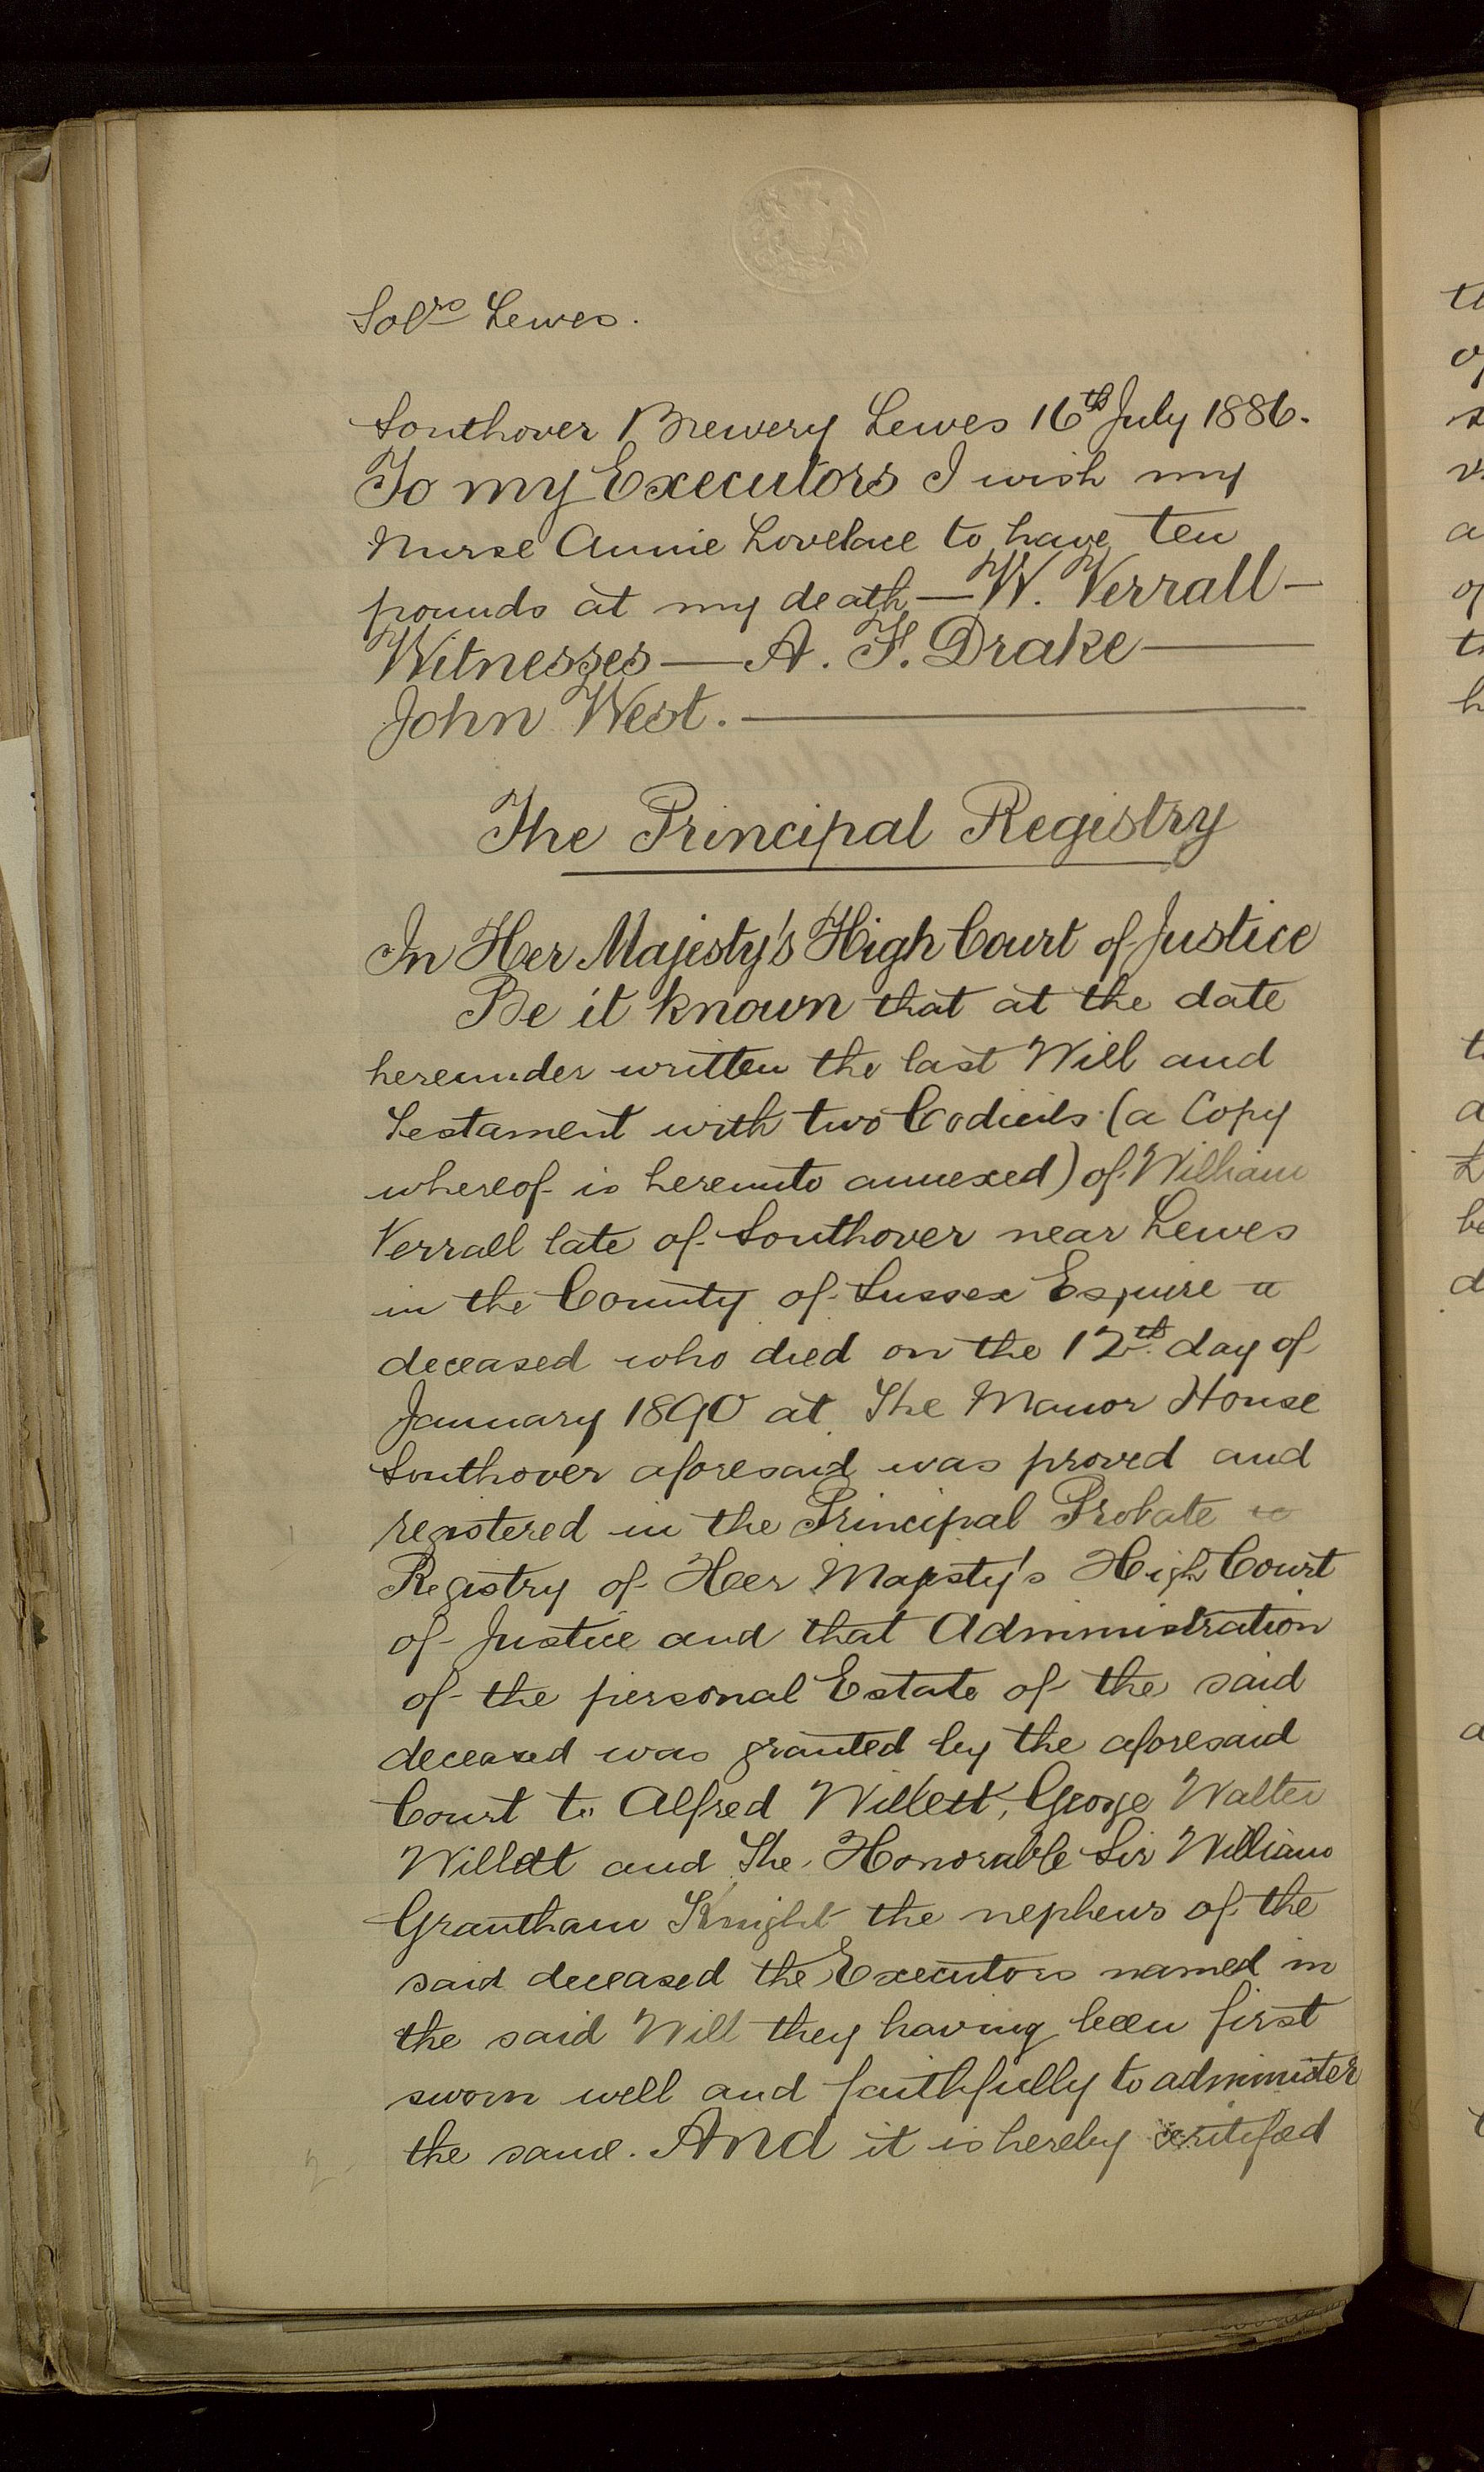 Solrs Lewes.
Southover Brewery Lewes 16th July 1886.
To my Executors I wish my
Nurse Annie Lovelace to have ten
pounds at my death — W. Verrall —
Witnesses — A. F. Drake —
John West. —
The Principal Registry
In Her Majesty's High Court of Justice
Be it known that at the date
hereunder written the last Will and
Testament with two Codicils (a Copy
whereof is hereunto annexed) of William
Verrall late of Southover near Lewes
in the County of Sussex Esquire
deceased who died on the 12th day of
January 1890 at The Manor House
Southover aforesaid was proved and
registered in the Principal Probate
Registry of Her Majesty's High Court
of Justice and that Administration
of the personal Estate of the said
deceased was granted by the aforesaid
Court to Alfred Willett, George Walter
Willett and The Honorable Sir William
Grantham Knight the nephews of the
said deceased the Executors named in
the said Will they having been first
sworn well and faithfully to administer
the same. And it is hereby certified